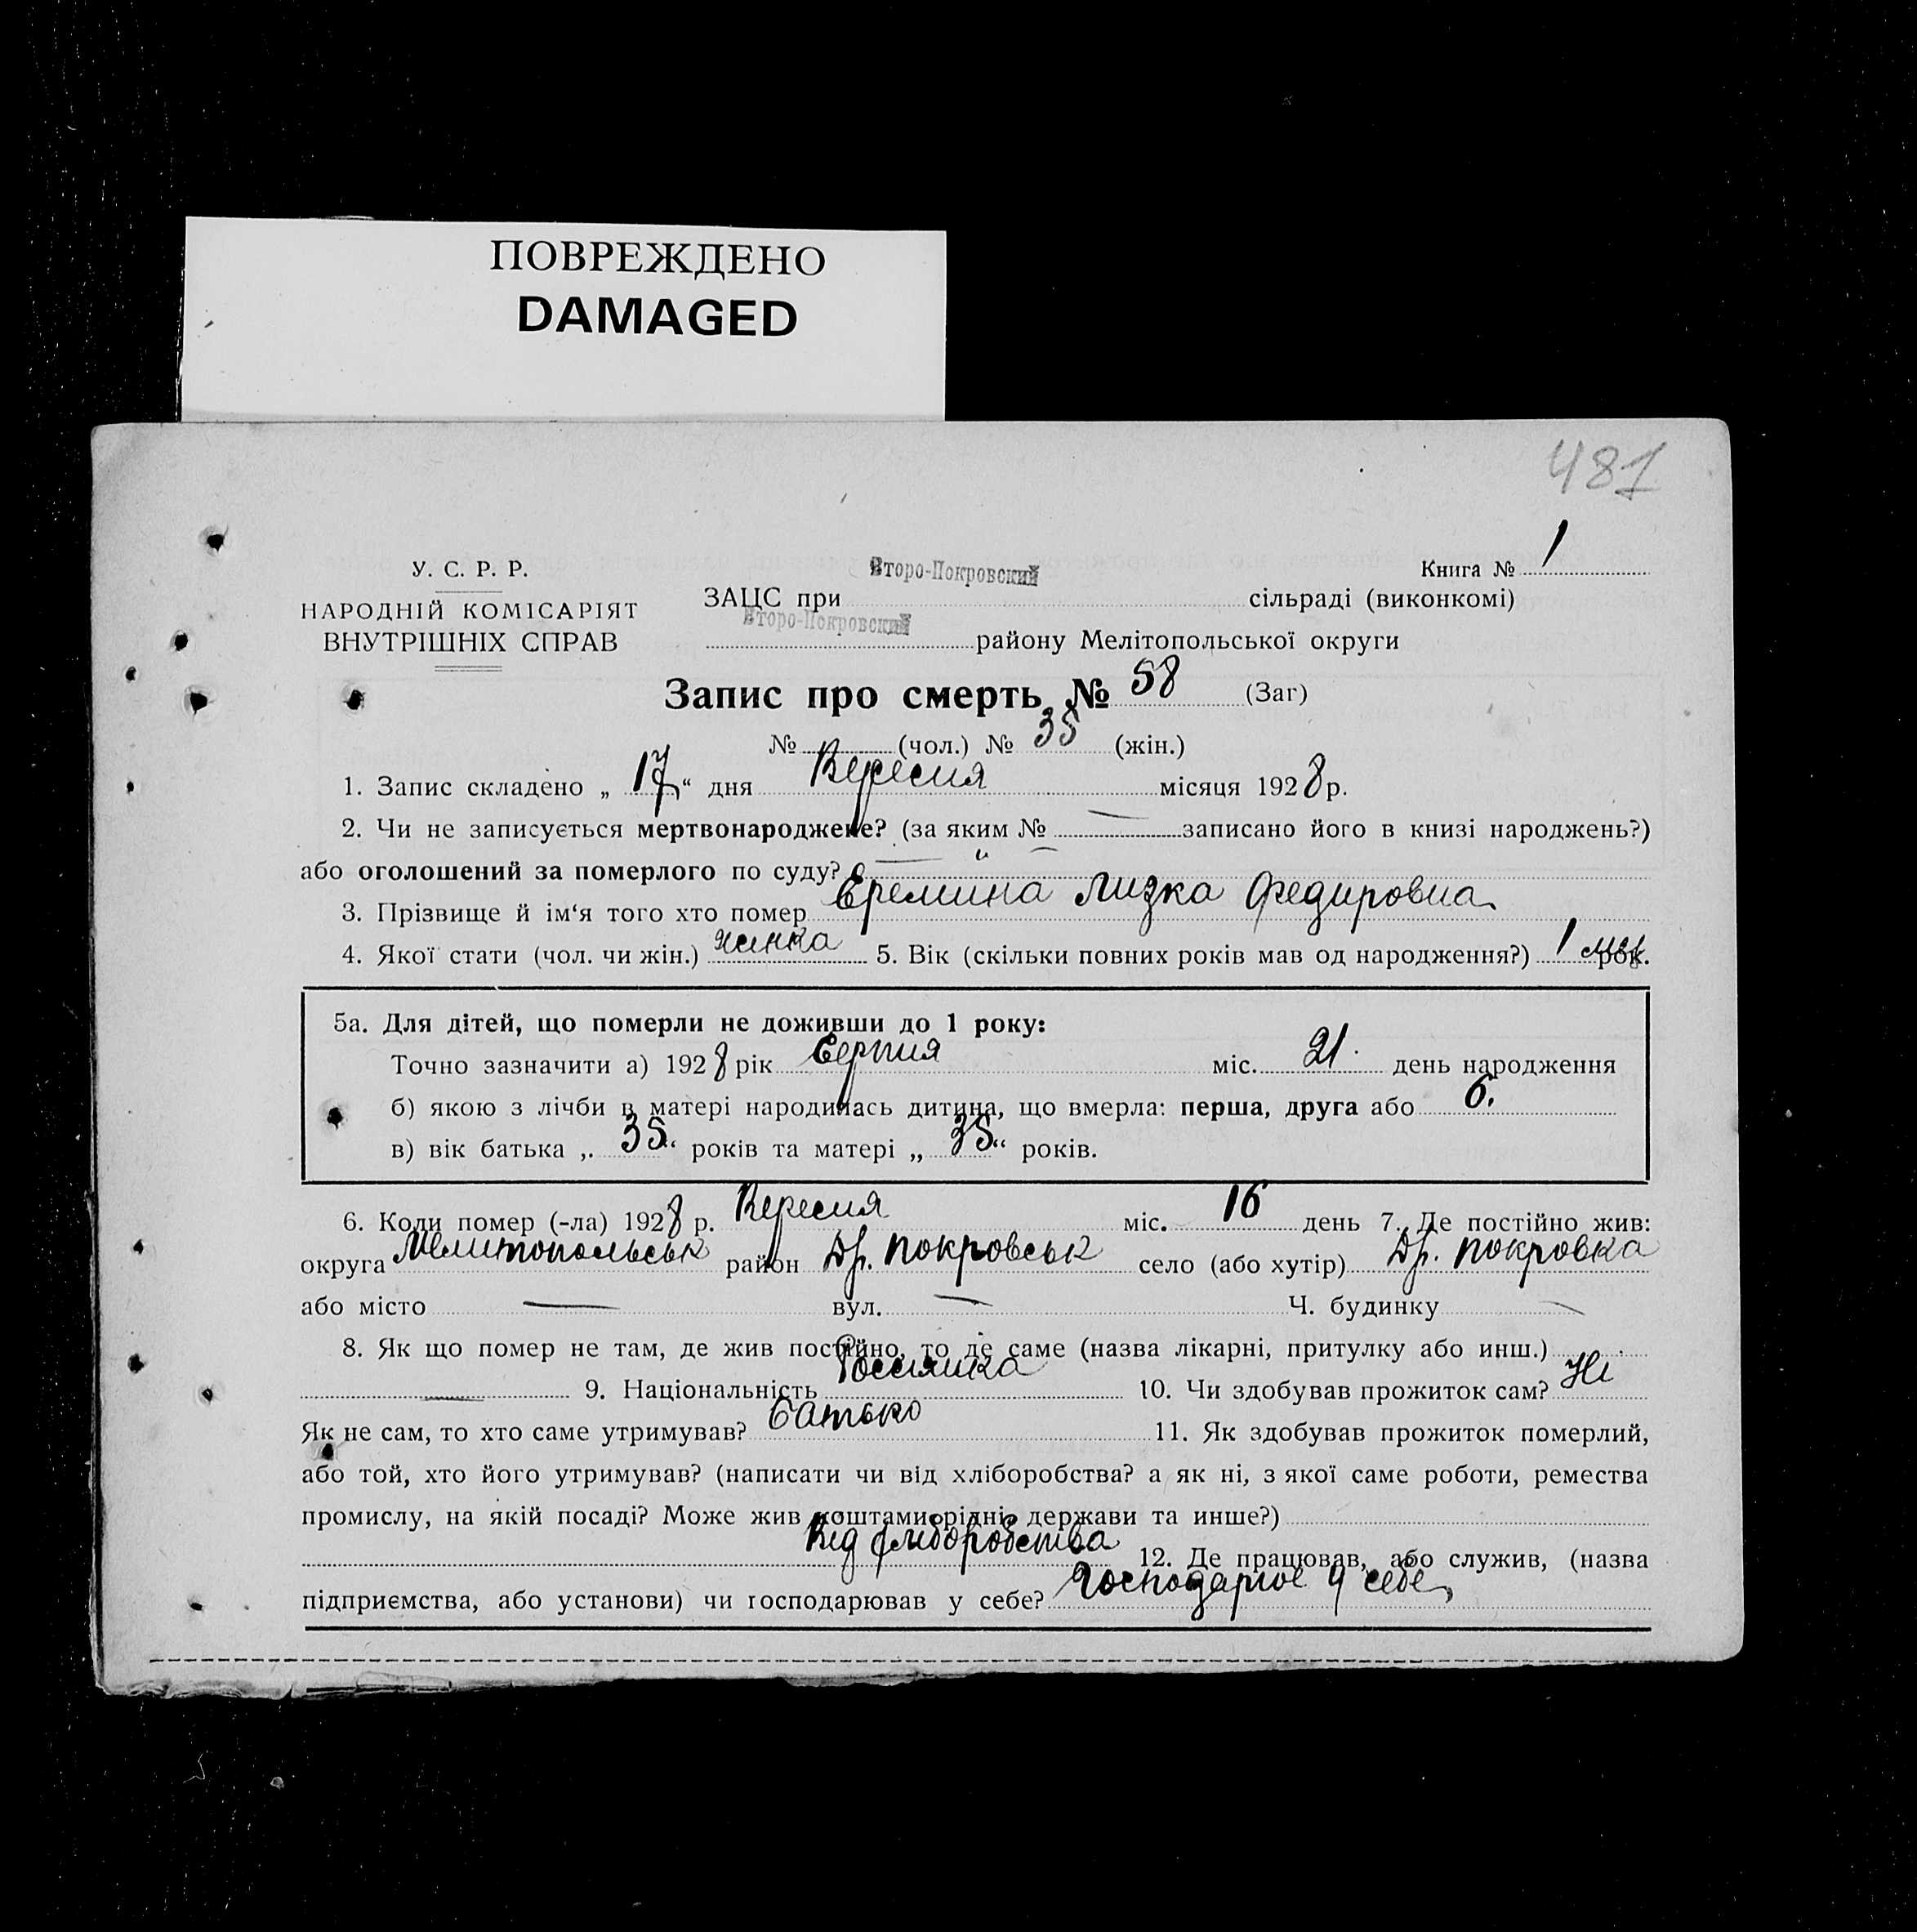 ПОВРЕЖДЕНО
DAMAGED
481
У. С. Р. Р.
НАРОДНІЙ КОМІСАРІЯТ
ВНУТРІШНІХ СПРАВ
Книга № 1
Второ-Покровский
ЗАЦС при сільраді (виконкомі)
Второ-Покровский
району Мелітопольської округи
Запис про смерть № 58 (Заг)
№ (чол.) № 35 (жін.)
1. Запис складено „ 17 “ дня Вересня місяця 1928 р.
2. Чи не записується мертвонароджене? (за яким № — записано його в книзі народжень?)
або оголошений за померлого по суду?
3. Прізвище й ім‘я того хто помер Еремина Лизка Федировна
4. Якої стати (чол. чи жін.) жинка 5. Вік (скільки повних років мав од народження?) 1 мес. рок.
5а. Для дітей, що померли не доживши до 1 року:
Точно зазначити а) 1928 рік Серпня міс. 21 день народження
б) якою з лічби в матері народилась дитина, що вмерла: перша, друга або 6.
в) вік батька „ 35 “ років та матері „ 35 “ років.
6. Коли помер (-ла) 1928 р. Вересня міс. 16 день 7. Де постійно жив:
округа Мелитопольськ район Др. Покровськ село (або хутір) Др. Покровка
або місто — вул. — Ч. будинку —
8. Як що помер не там, де жив постійно, то де саме (назва лікарні, притулку або инш.)
— 9. Національність Россиянка 10. Чи здобував прожиток сам? Ні
Як не сам, то хто саме утримував? Батько 11. Як здобував прожиток померлий,
або той, хто його утримував? (написати чи від хліборобства? а як ні, з якої саме роботи, ремества
промислу, на якій посаді? Може жив коштами рідні, держави та инше?)
Від хліборобства 12. Де працював, або служив, (назва
підприємства, або установи) чи господарював у себе? Господарює у себе